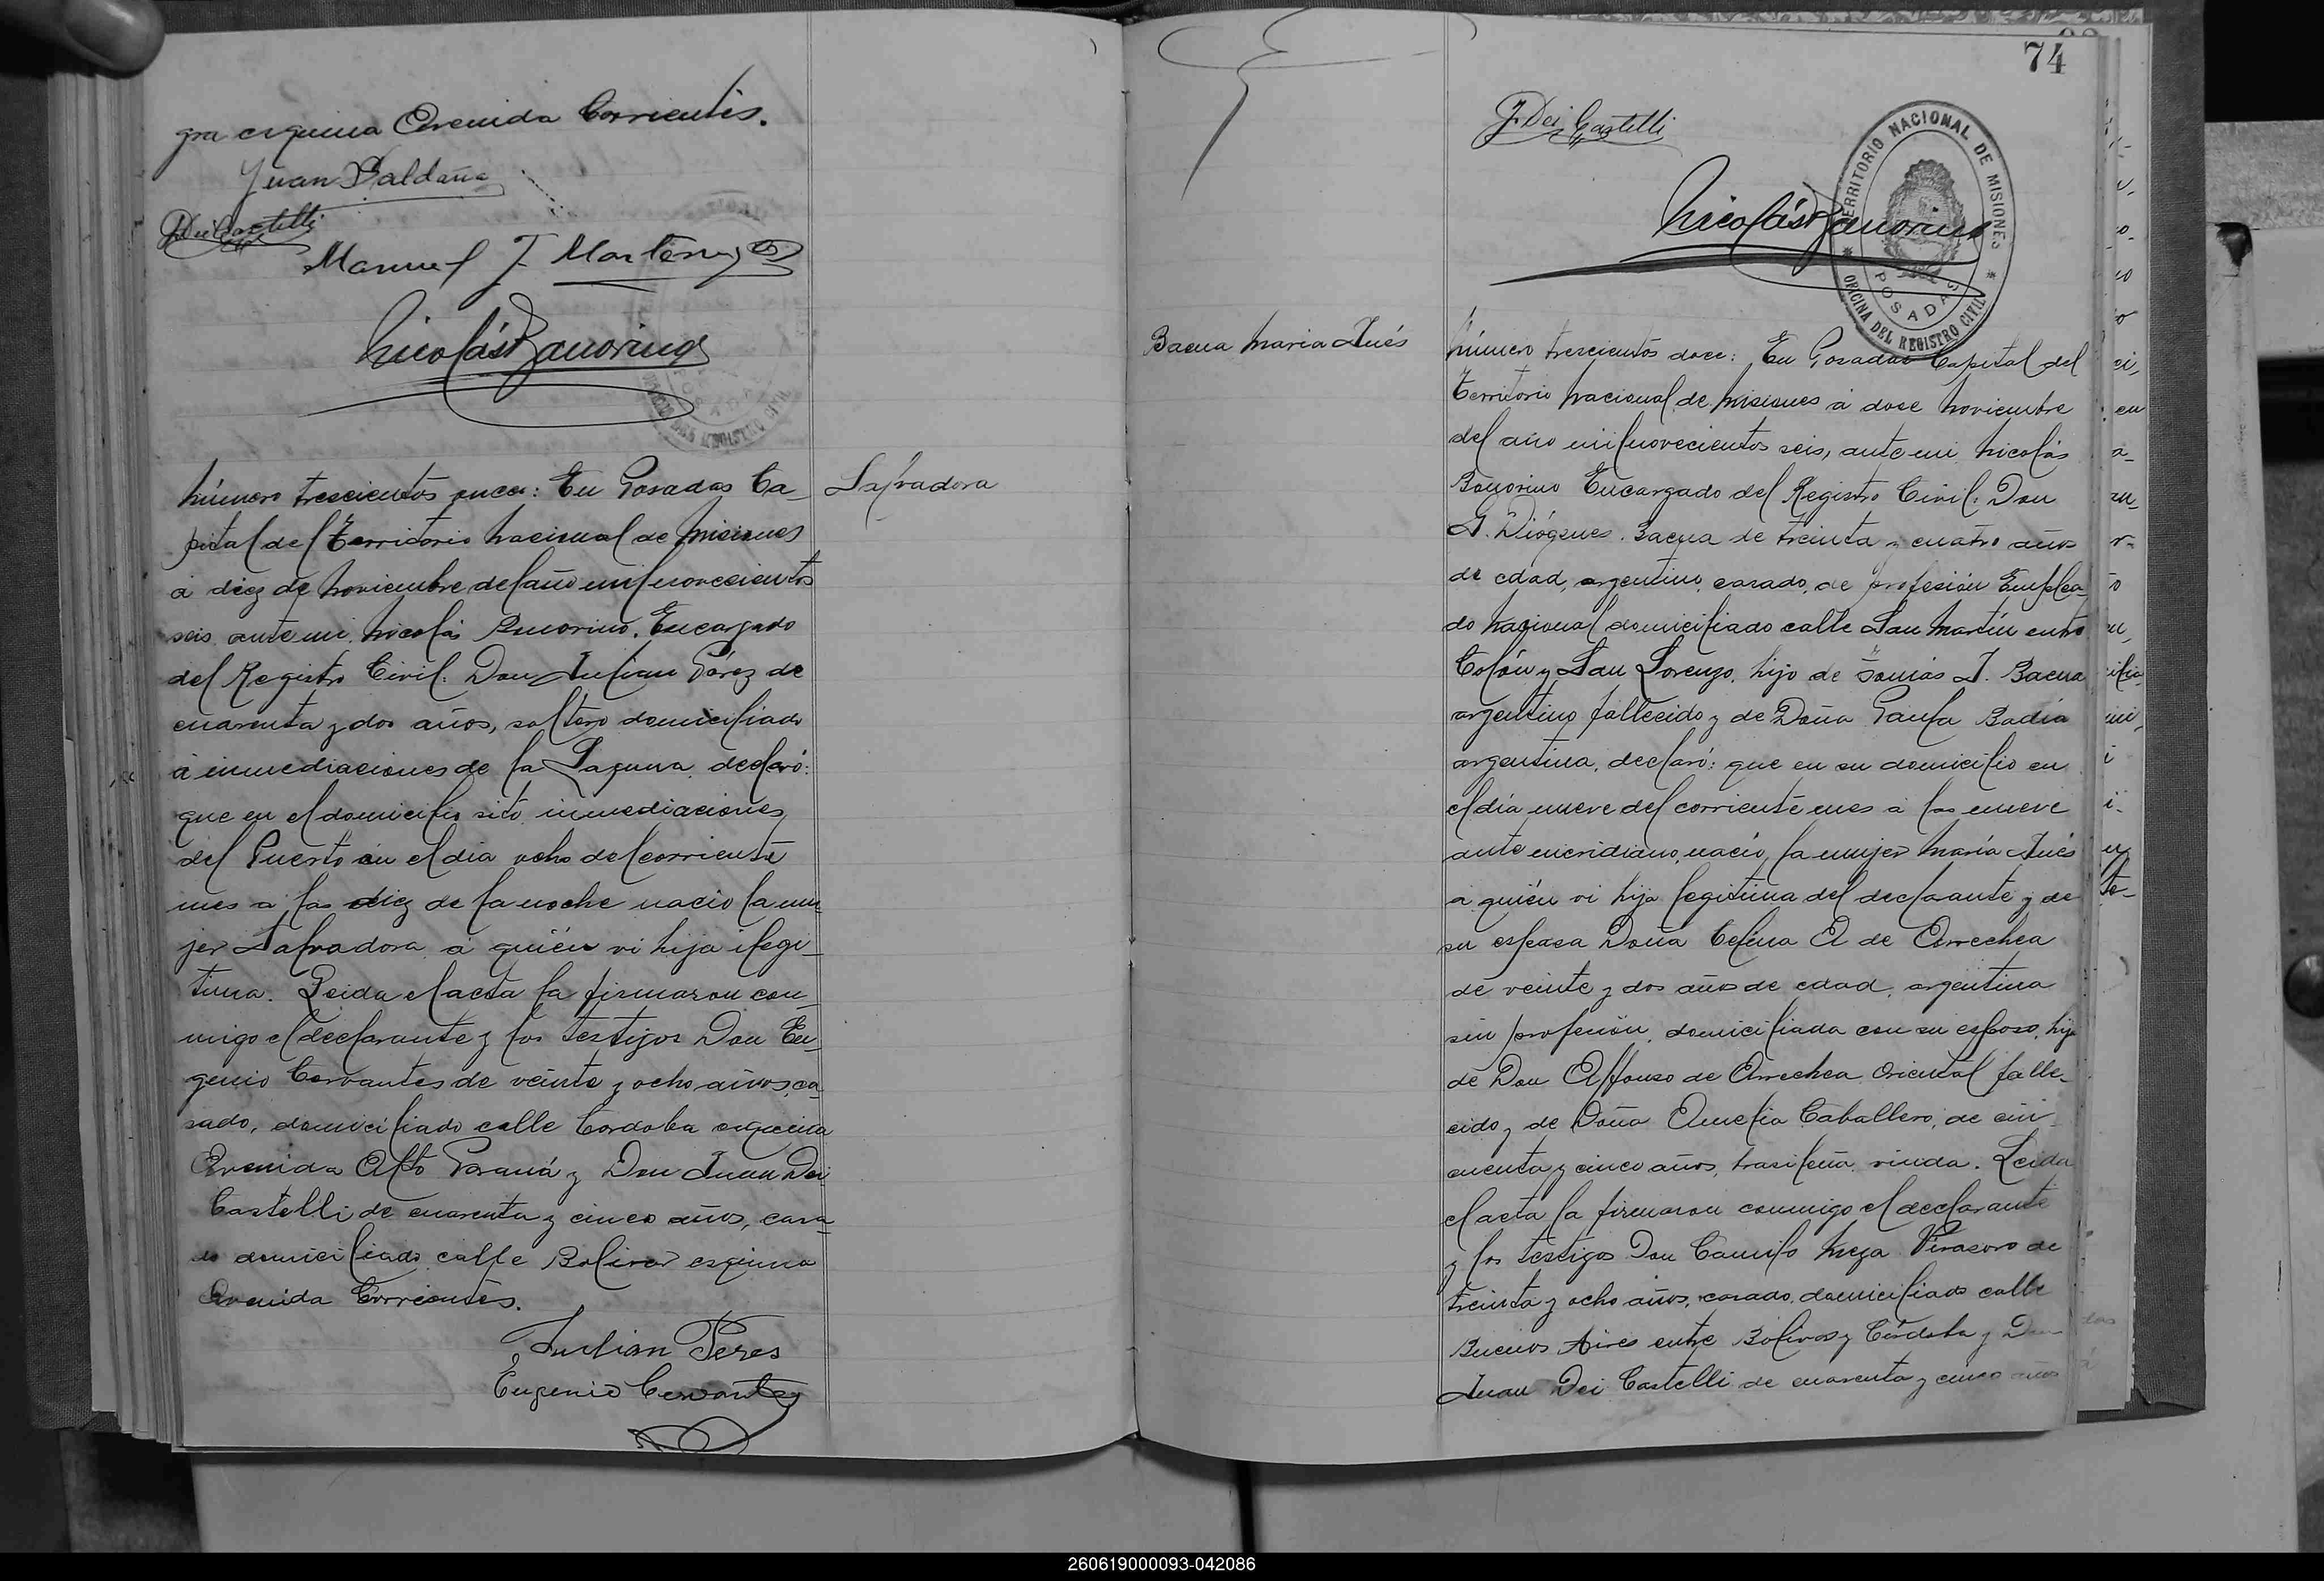 gra esquina Avenida Corrientes.
Juan Saldaña
J. Dei Castelli
Manuel J. Martinez
Nicolás Bonorino
Número trescientos once: En Posadas Ca-
pital del Territorio Nacional de Misiones
á diez de Noviembre del año mil novecientos
seis ante mi Nicolás Bonorino, Encargado
del Registro Civil: Don Julian Pérez de
cuarenta y dos años, soltero domiciliado
á inmediaciones de la Laguna, declaró:
que en el domicilio sito inmediaciones
del Puerto en el dia ocho del corriente
mes a las diez de la noche nació la mu-
jer Salvadora á quién vi hija ilegi-
tima. Leida el acta la firmaron con-
migo el declarante y los testigos Don Eu-
genio Cervantes de veinte y ocho años, ca-
sado, domiciliado calle Cordoba esquina
Avenida Alto Paraná y Don Juan Dei
Castelli de cuarenta y cinco años, casa-
do domiciliado calle Bolivar esquina
Avenida Corrientes.
Julian Peres
Eugenio Cervantes
Salvadora
74
J. Dei Castelli
Nicolás Bonorino
TERRITORIO NACIONAL DE MISIONES
POSADAS
OFICINA DEL REGISTRO CIVIL
Baena Maria Inés
Número trescientos doce: En Posadas Capital del
Territorio Nacional de Misiones á doce Noviembre
del año mil novecientos seis, ante mi Nicolás
Bonorino Encargado del Registro Civil: Don
S. Diógenes Baena de treinta y cuatro años
de edad, argentino, casado, de profesión Emplea-
do Nacional domiciliado calle San Martín entre
Colón y San Lorenzo, hijo de Tomás J. Baena
argentino fallecido y de Doña Paula Badia
argentina, declaró: que en su domicilio en
el día nueve del corriente mes á las nueve
ante meridiano, nació la mujer María Inés
a quién vi hija legitima del declarante y de
su esposa Doña Celina A de Arrechea
de veinte y dos años de edad, argentina
sin profesión, domiciliada con su esposo, hija
de Don Alfonso de Arrechea Oriental falle-
cido y de Doña Amelia Caballero, de cin-
cuenta y cinco años, brasileña, viuda. Leida
el acta la firmaron conmigo el declarante
y los testigos Don Camilo Meza Virasoro de
treinta y ocho años, casado, domiciliado calle
Buenos Aires entre Bolivar y Córdoba y Don
Juan Dei Castelli de cuarenta y cinco años
260619000093-042086